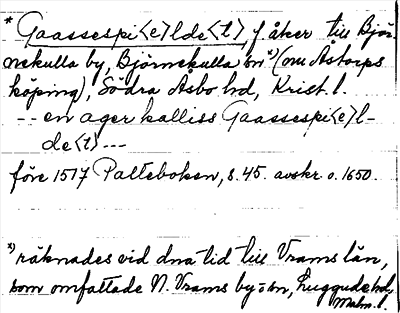 * Gaassespi<e>lde<t>, f. åker till Björ-
nekulla by, Björnekulla sn *) (om Åstorps
köping), Södra Åsbo hd, Krist. l.
-- en ager kalliss Gaassespi<e>l-
de<t> ---
före 1517 Palteboken, s. 45. avskr o. 1650.
*) räknades vid dna tid till Vrams län,
som omfattade N. Vrams by o sn, Luggude hd,
Malm. l.